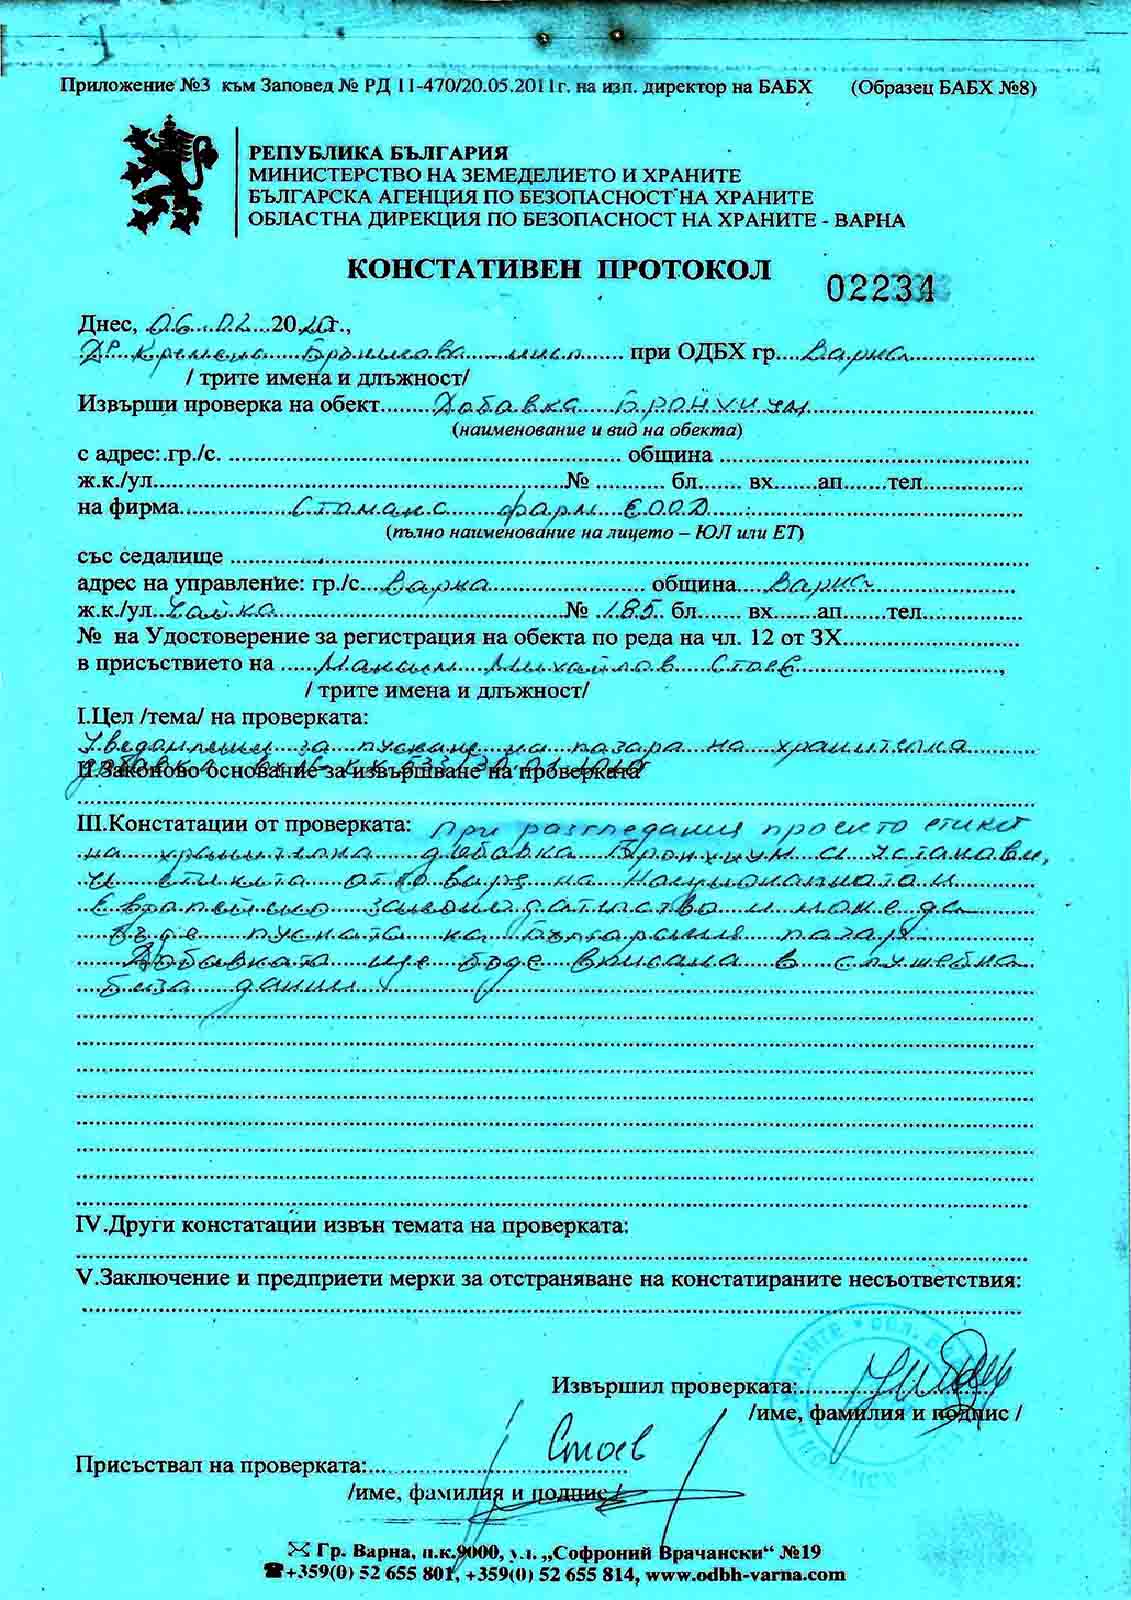 Приложение №3 към Заповед № РД 11-470/20.05.2011г. на изп. директор на БАБХ (Образец БАБХ №8)
РЕПУБЛИКА БЪЛГАРИЯ
МИНИСТЕРСТВО НА ЗЕМЕДЕЛИЕТО И ХРАНИТЕ
БЪЛГАРСКА АГЕНЦИЯ ПО БЕЗОПАСНОСТ НА ХРАНИТЕ
ОБЛАСТНА ДИРЕКЦИЯ ПО БЕЗОПАСНОСТ НА ХРАНИТЕ - ВАРНА
КОНСТАТИВЕН ПРОТОКОЛ
02234
Днес, 06.02.2020г.,
Д-р Кремена при ОДБХ гр. Варна
/ трите имена и длъжност/
Извърши проверка на обект Добавка Бронхиум
(наименование и вид на обекта)
с адрес: гр./с. община
ж.к./ул. № бл. вх. ап. тел.
на фирма Стоманс фарм ЕООД
(пълно наименование на лицето – ЮЛ или ЕТ)
със седалище
адрес на управление: гр./с. Варна община Варна
ж.к./ул. Чайка № 185 бл. вх. ап. тел.
№ на Удостоверение за регистрация на обекта по реда на чл. 12 от ЗХ
в присъствието на Максим Михайлов Стоев,
/ трите имена и длъжност/
I.Цел /тема/ на проверката:
Уведомление за пускане на пазара на хранителна
добавка
II.Законово основание за извършване на проверката
III.Констатации от проверката: При разглеждания проекто етикет
на хранителна добавка Бронхиум се установи,
че етикета отговаря на Националното и
Европейско законодателство и може да
бъде пусната на българския пазар.
Добавката ще бъде вписана в служебна
база данни
IV.Други констатации извън темата на проверката:
V.Заключение и предприети мерки за отстраняване на констатираните несъответствия:
Извършил проверката:
/име, фамилия и подпис /
Стоев
Присъствал на проверката:
/име, фамилия и подпис /
Гр. Варна, п.к.9000, ул. „Софроний Врачански“ №19
+359(0) 52 655 801, +359(0) 52 655 814, www.odbh-varna.com